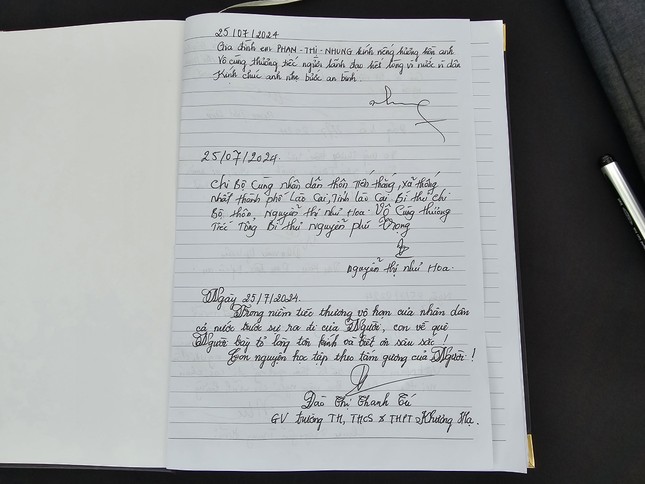 25/07/2024
Gia đình em PHAN-THỊ-NHUNG kính viếng hương hồn anh
Vô cùng thương tiếc người lãnh đạo hết lòng vì nước vì dân
Kính chúc anh nhẹ bước an bình.
25/07/2024.
Chi Bộ Cùng nhân dân thôn Tiến thắng, xã thống
nhất thành phố Lào Cai, Tỉnh Lào Cai Bí thư Chi
Bộ thôn, Nguyễn Thị Như Hoa. Vô Cùng thương
Tiếc Tổng Bí thư Nguyễn phú Trọng
Nguyễn thị Như Hoa.
Ngày 25/7/2024.
Trong niềm tiếc thương vô hạn của nhân dân
cả nước trước sự ra đi của Người, con về quê
Người bày tỏ lòng tôn kính và biết ơn sâu sắc!
Con nguyện học tập theo tấm gương của Người!
Đào Thị Thanh Tú
GV trường TH, THCS & THPT Khương Hạ.